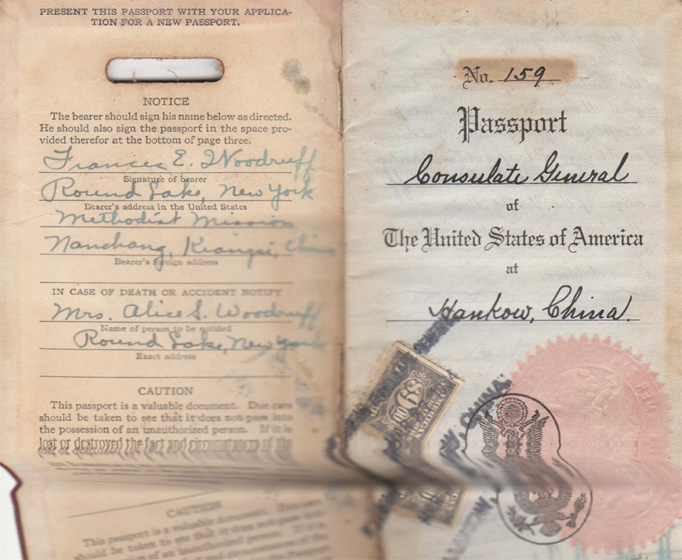 PRESENT THIS PASSPORT WITH YOUR APPLICA-
TION FOR A NEW PASSPORT.
NOTICE
The bearer should sign his name below as directed.
He should also sign the passport in the space pro-
vided therefor at the bottom of page three.
Frances E. Woodruff
Signature of bearer
Round Lake, New York
Bearer's address in the United States
Methodist Mission
Nanchang, Kiangsi, China
Bearer's foreign address
IN CASE OF DEATH OR ACCIDENT NOTIFY
Mrs. Alice S. Woodruff
Name of person to be notified
Round Lake, New York
Exact address
CAUTION
This passport is a valuable document. Due care
should be taken to see that it does not pass into
the possession of an unauthorized person. If it is
lost or destroyed the fact and circumstances of the
CAUTION
This passport is a valuable document.
should be taken to see that it does not
the possession of an unauthorized
No. 159
Passport
Consulate General
of
The United States of America
at
Hankow, China.
CHINA